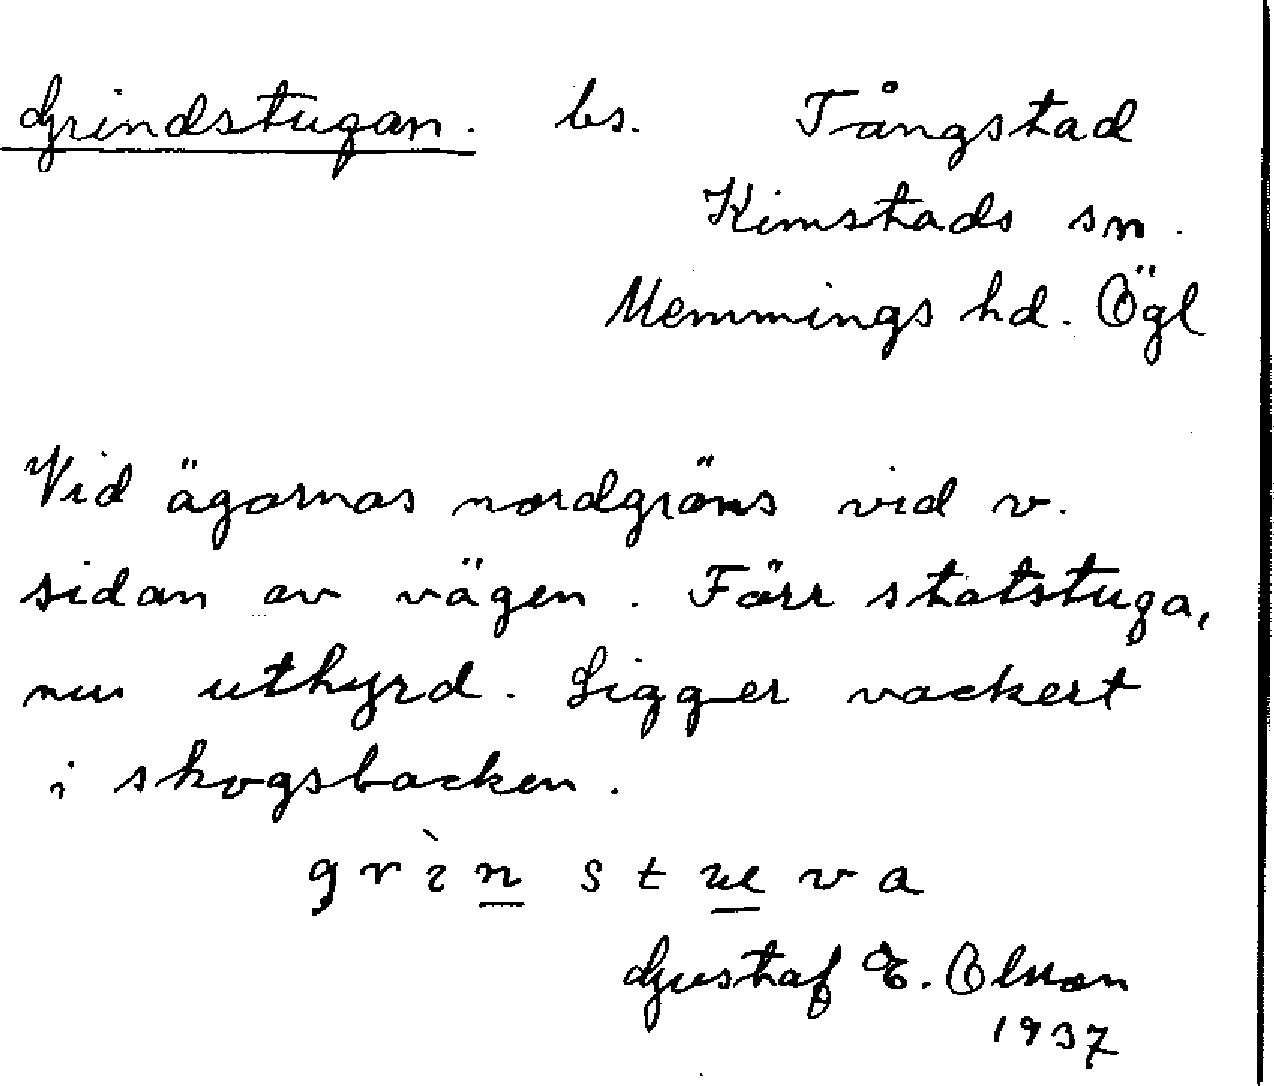 Grindstugan. bs. Tångstad
Kimstads sn.
Memmings hd. Ögl
Vid ägornas nordgräns vid v.
sidan av vägen. Förr statstuga,
nu uthyrd. Ligger vackert
i skogsbacken.
grìn stuva
Gustaf E. Olsson
1937